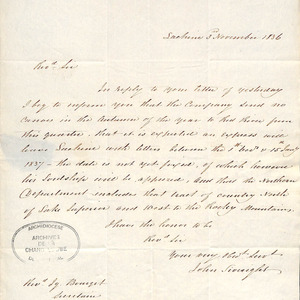 Lachine 5 November 1836
Revd. Sir
In reply to your letter of yesterday
I beg to inform you that the Company send no
Canoes in the Autumn of the year to Red River from
this quarter, that it is expected an express will
leave Lachine with letters between the 1st &
1837 – the date is not yet fixed, of which however
his Lordship will be apprised, and that the Northern
Department includes that tract of country North
of Lake Superior and West to the Rocky Mountains.
I have the honor to be
Revd. Sir
Your very Obt. Servt.
John Sieveright
ARCHIDIOCESE
ARCHIVES
DE LA
Revd. Ig Bourget